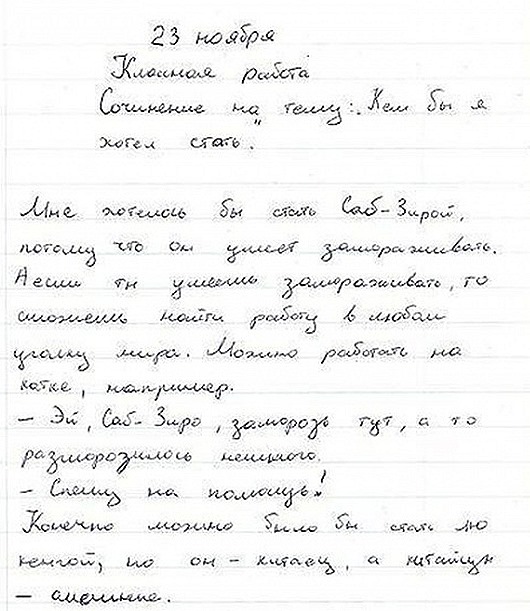 23 ноября
Классная работа
Сочинение на тему: "Кем бы я
хотел стать.
Мне хотелось бы стать Саб-Зирой,
потому что он умеет замораживать.
А если ты умеешь замораживать, то
сможешь найти работу в любом
уголку мира. Можно работать на
катке, например.
- Эй, Саб-Зиро, заморозь тут, а то
разморозилось немного.
- Спешу на помощь!
Конечно можно было бы стать Лю
кенгой, но он - китаец, а китайцы